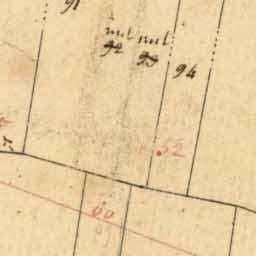 91
nul nul
92 93 94
52
60